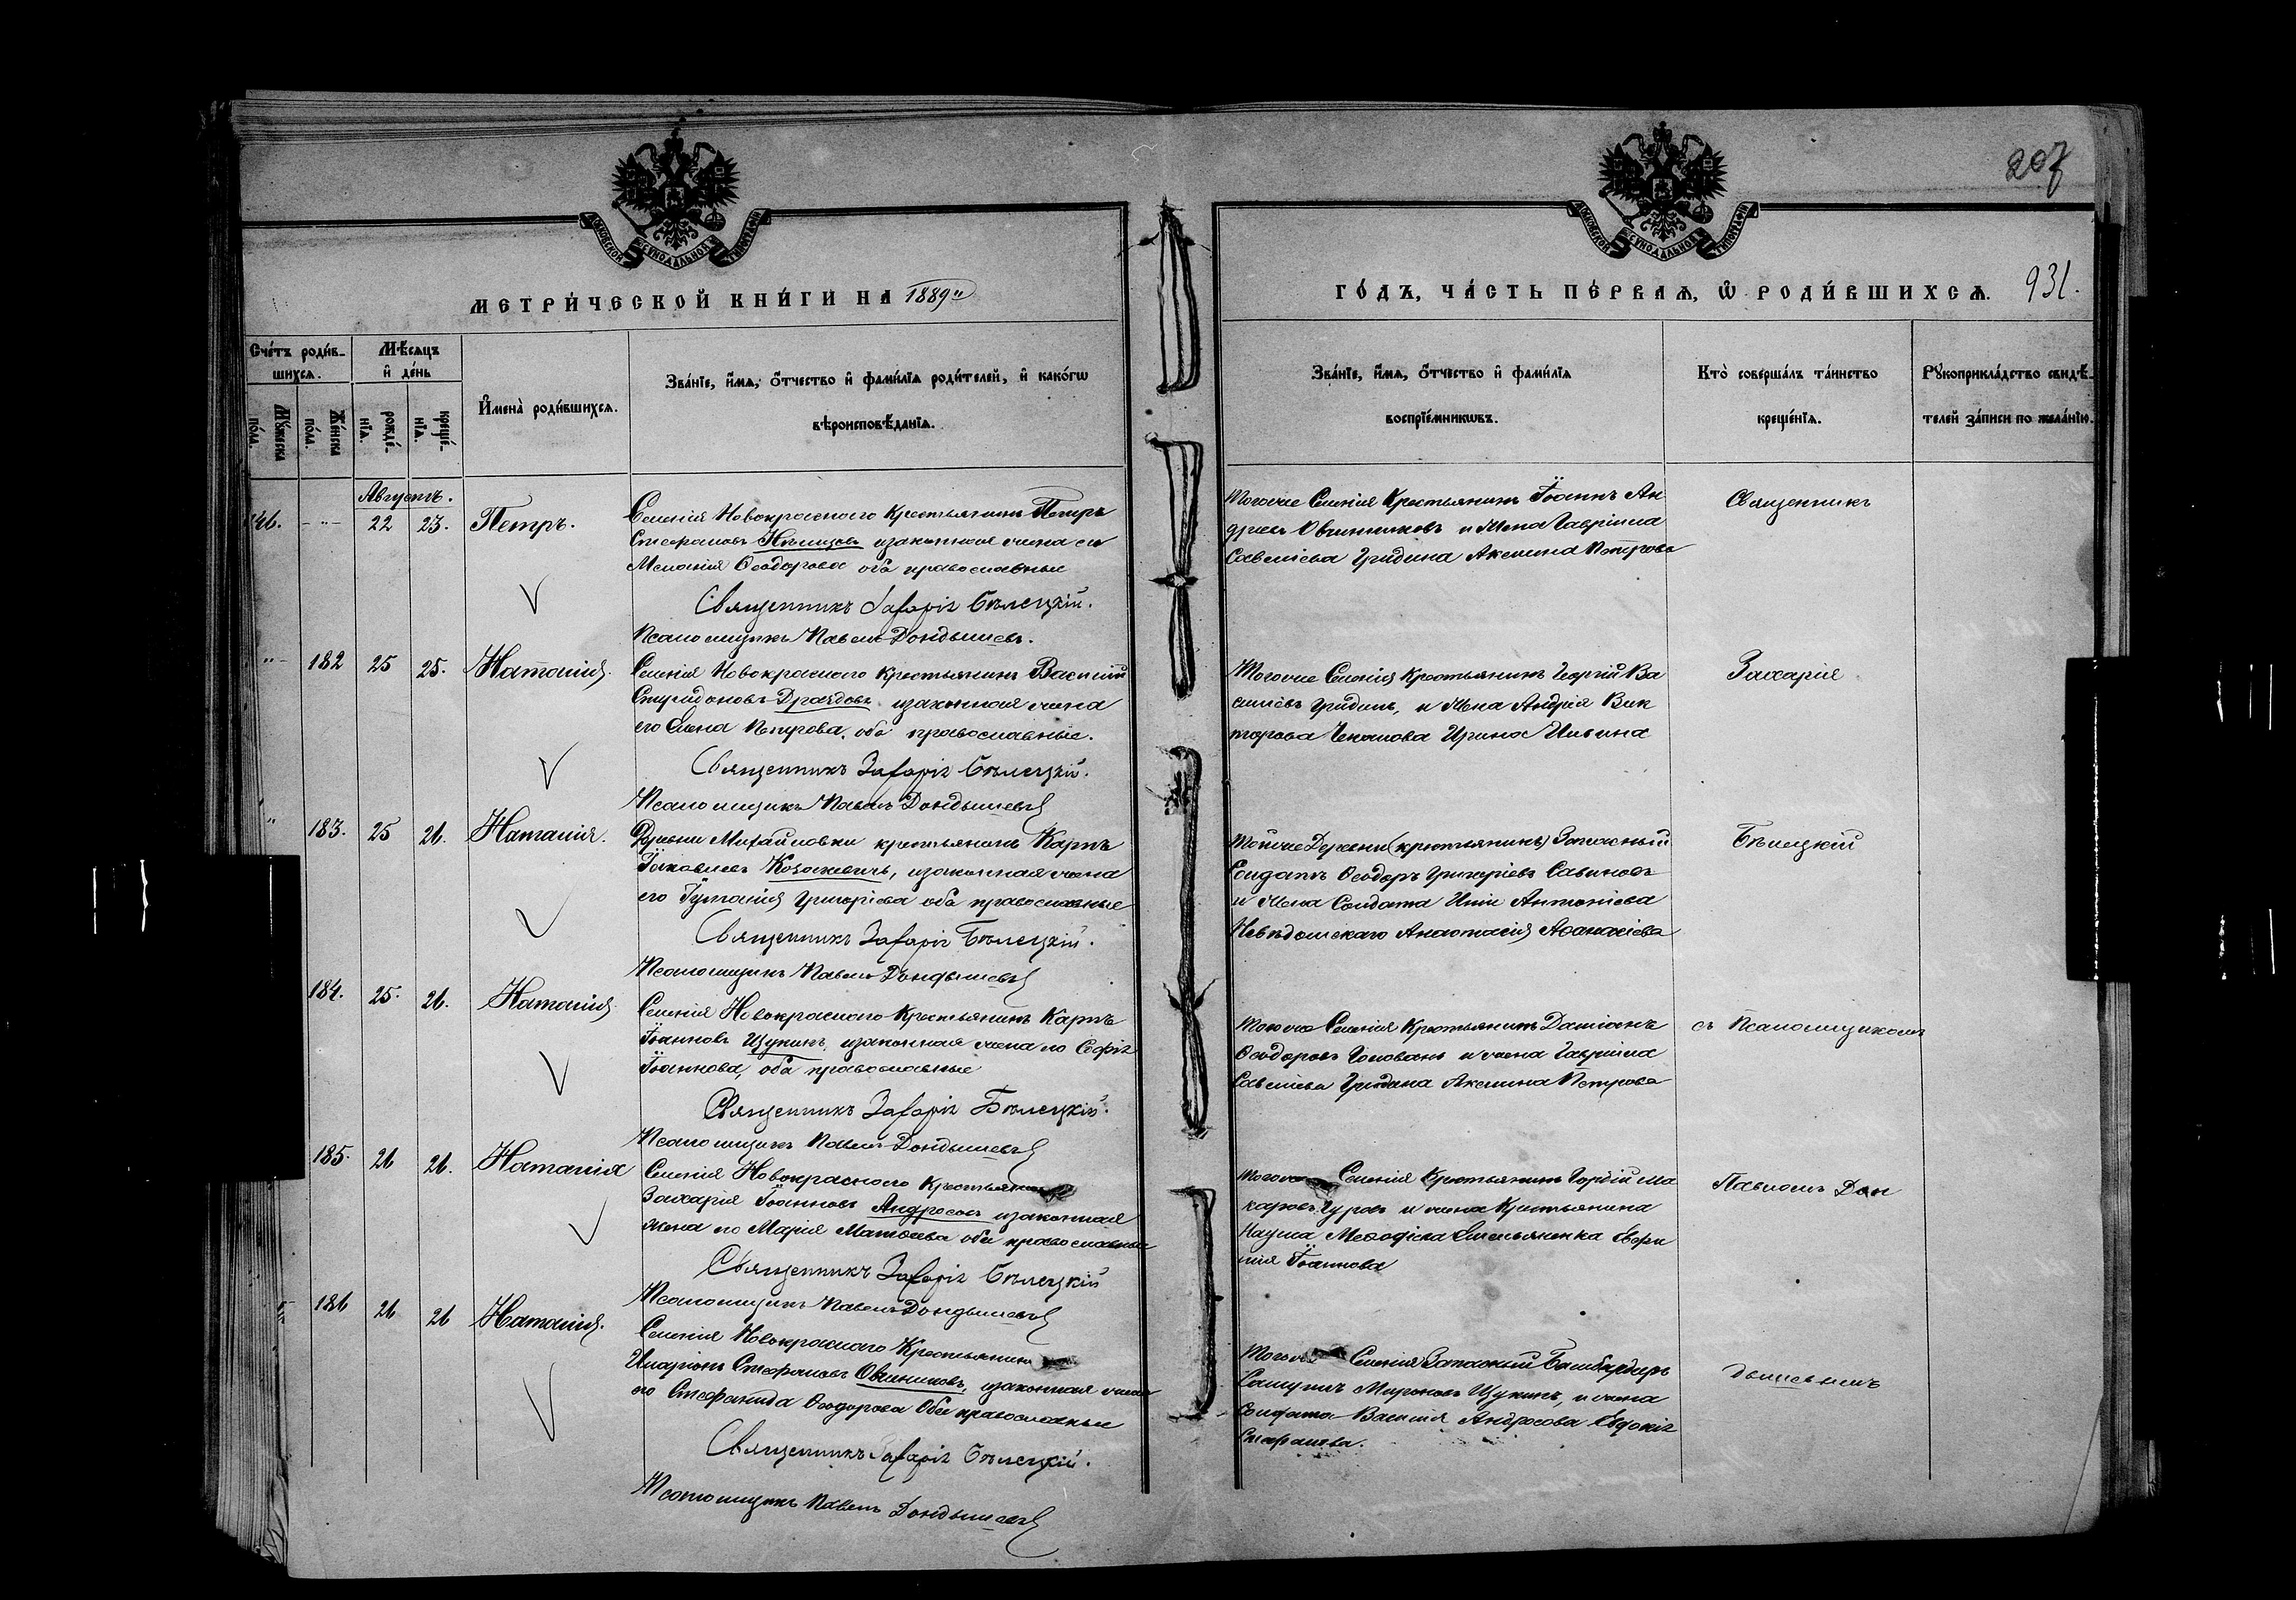 207
МОСКОВСКОЙ СѴНОДАЛЬНОЙ ТИПОГРАФІИ
МОСКОВСКОЙ СѴНОДАЛЬНОЙ ТИПОГРАФІИ
МЕТРИ́ЧЕСКОЙ КНИ́ГИ НА 1889й
ГО́ДЪ, ЧА́СТЬ ПЕ́РВАѦ, Ѽ РОДИ́ВШИХСѦ. 931.
Сче́тъ роди́в-
шихсѧ.
Мꙋ́жеска по́ла.
Же́нска по́ла.
Мѣ́сѧцъ
и҆ де́нь
рожде́-
нїѧ.
креще́-
нїѧ.
И҆мена̀ роди́вшихсѧ.
Зва́нїе, и҆́мѧ, ѻ҆́тчество и҆ фами́лїѧ роди́телей, и҆ како́гѡ
вѣроисповѣ́данїѧ.
Зва́нїе, и҆́мѧ, ѻ҆́тчество и҆ фами́лїѧ
воспрїе́мникѡвъ.
Кто̀ соверша́лъ та́инство
креще́нїѧ.
Рꙋкоприкла́дство свидѣ́-
телей за́писи по жела́нїю.
Августъ.
146. - " - 22 23. Петръ.
Селенія Новокрасного Крестьянинъ Петръ
Стефановъ Нѣмцовъ и законная жена его
Меланія Ѳеодорова оба православные
Священникъ Захарія Бѣлецкій.
Псаломщикъ Павелъ Дондышевъ.
Тогоже Селенія Крестьянинъ Іоаннъ Ан
дреевъ Овчинниковъ и Жена Гавріила
Савеліева Гридина Акелина Петрова
Священникъ
" 182 25 25. Наталія.
Селенія Новокрасного Крестьянинъ Василій
Спиридоновъ Дроздовъ и законная жена
его Елена Петрова, оба православные.
Священникъ Захарія Бѣлецкій.
Псаломщикъ Павелъ Дондышевъ
Тогоже Селенія Крестьянинъ Георгій Ва
силіевъ Гридинъ, и Жена Андрея Вик
торова Чекалова Ирина Ильина
Захарія
" 183. 25 26. Наталія.
Деревни Михайловки крестьянинъ Карпъ
Іаковлевъ Козакевичъ, и законная жена
его Іуліанія Григоріева оба православные
Священникъ Захарія Бѣлецкій.
Псаломщикъ Павелъ Дондышевъ
Тойже Деревни (крестьянинъ) Запасный
Солдатъ Ѳеодоръ Григоріевъ Савиновъ
и Жена Солдата Иліи Антоніева
Анастасія Аѳанасіева
Бѣлецкій
184. 25. 26. Наталія
Селенія Новокрасного Крестьянинъ Карпъ
Іоанновъ Щукинъ, и законная жена его Софія
Іоаннова, оба православные
Священникъ Захарія Бѣлецкій.
Псаломщикъ Павелъ Дондышевъ
Тогоже Селенія Крестьянинъ Даміанъ
Ѳеодоровъ Головань и жена Гавріила
Савеліева Гридина Акелина Петрова
съ Псаломщикомъ
185. 26 26. Наталія
Селенія Новокрасного Крестьянинъ
Захарія Іоанновъ Андросовъ и законная
жена его Марія Матѳеева оба православные
Священникъ Захарія Бѣлецкій
Псаломщикъ Павелъ Дондышевъ
Тогоже Селенія Крестьянинъ Гордій Ма
каровъ Гуровъ и жена Крестьянина
Наума Меѳодіева Емельяненка Евфи
мія Іоаннова
Павломъ Дон
186 26 26 Наталія.
Селенія Новокрасного Крестьянинъ
Иларіонъ Стефановъ Овчинниковъ, и законная жена
его Стефанида Ѳеодорова Оба православные
Священникъ Захарія Бѣлецкій.
Псаломщикъ Павелъ Дондышевъ
Тогоже Селенія Запасный Бомбардиръ
Самуилъ Мироновъ Щукинъ, и жена
Солдата Василія Андросова Евдокія
Стефанова.
дышевымъ